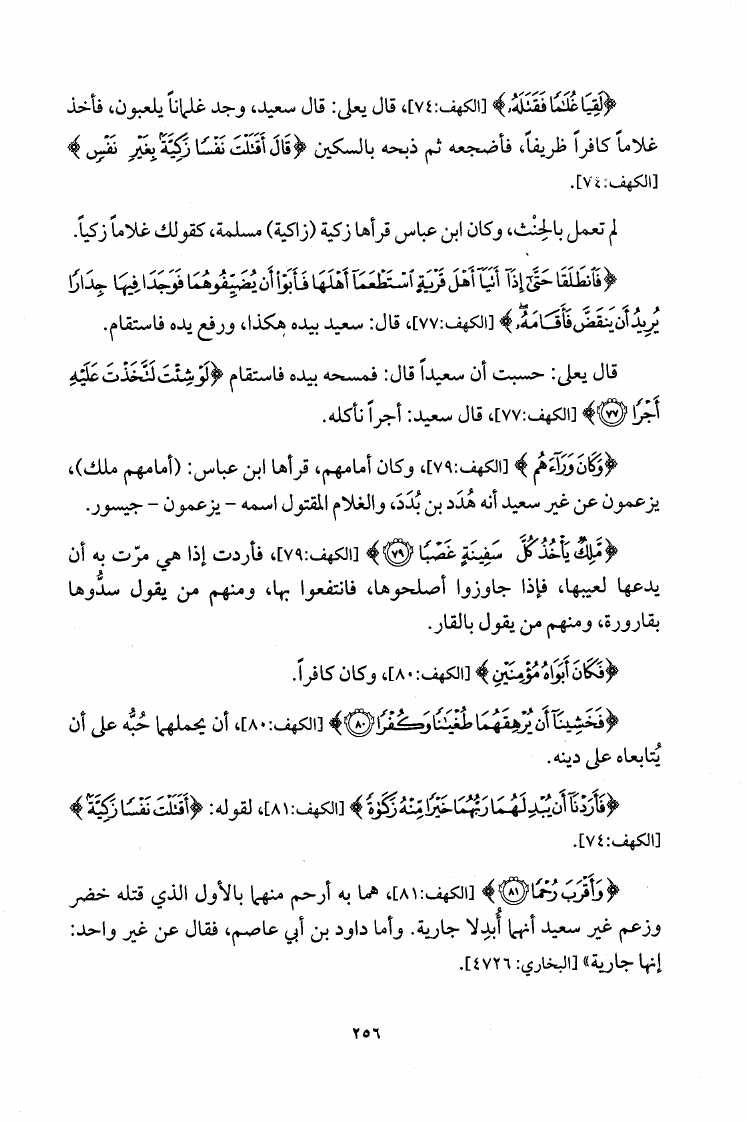 ﴿لَقِيَا غُلَامًا فَقَتَلَهُ﴾ [الكهف:٧٤]، قال يعلى: قال سعيد، وجد غلماناً يلعبون، فأخذ
غلاماً كافراً ظريفاً، فأضجعه ثم ذبحه بالسكين ﴿قَالَ أَقَتَلْتَ نَفْسًا زَكِيَّةً بِغَيْرِ نَفْسٍ﴾
[الكهف:٧٤].
لم تعمل بالحِنْث، وكان ابن عباس قرأها زكية (زاكية) مسلمة، كقولك غلاماً زكياً.
﴿فَانطَلَقَا حَتَّى إِذَا أَتَيَا أَهْلَ قَرْيَةٍ اسْتَطْعَمَا أَهْلَهَا فَأَبَوْا أَن يُضَيِّفُوهُمَا فَوَجَدَا فِيهَا جِدَارًا
يُرِيدُ أَن يَنقَضَّ فَأَقَامَهُ﴾ [الكهف:٧٧]، قال: سعيد بيده هكذا، ورفع يده فاستقام.
قال يعلى: حسبت أن سعيداً قال: فمسحه بيده فاستقام ﴿لَوْ شِئْتَ لَتَّخَذْتَ عَلَيْهِ
أَجْرًا ٧٧﴾ [الكهف:٧٧]، قال سعيد: أجراً نأكله.
﴿وَكَانَ وَرَاءَهُم﴾ [الكهف:٧٩]، وكان أمامهم، قرأها ابن عباس: (أمامهم ملك)،
يزعمون عن غير سعيد أنه هُدَد بن بُدَدَ، والغلام المقتول اسمه – يزعمون – جيسور.
﴿مَّلِكٌ يَأْخُذُ كُلَّ سَفِينَةٍ غَصْبًا ٧٩﴾ [الكهف:٧٩]، فأردت إذا هي مرّت به أن
يدعها لعيبها، فإذا جاوزوا أصلحوها، فانتفعوا بها، ومنهم من يقول سدُّوها
بقارورة، ومنهم من يقول بالقار.
﴿فَكَانَ أَبَوَاهُ مُؤْمِنَيْنِ﴾ [الكهف:٨٠]، وكان كافراً.
﴿فَخَشِينَا أَن يُرْهِقَهُمَا طُغْيَانًا وَكُفْرًا ٨٠﴾ [الكهف:٨٠]، أن يحملهما حُبُّه على أن
يُتابعاه على دينه.
﴿فَأَرَدْنَا أَن يُبْدِلَهُمَا رَبُّهُمَا خَيْرًا مِّنْهُ زَكَوٰةً﴾ [الكهف:٨١]، لقوله: ﴿أَقَتَلْتَ نَفْسًا زَكِيَّةً﴾
[الكهف:٧٤].
﴿وَأَقْرَبَ رُحْمًا ٨١﴾ [الكهف:٨١]، هما به أرحم منهما بالأول الذي قتله خضر
وزعم غير سعيد أنهما أُبدِلا جارية. وأما داود بن أبي عاصم، فقال عن غير واحد:
إنها جارية» [البخاري: ٤٧٢٦].
٢٥٦